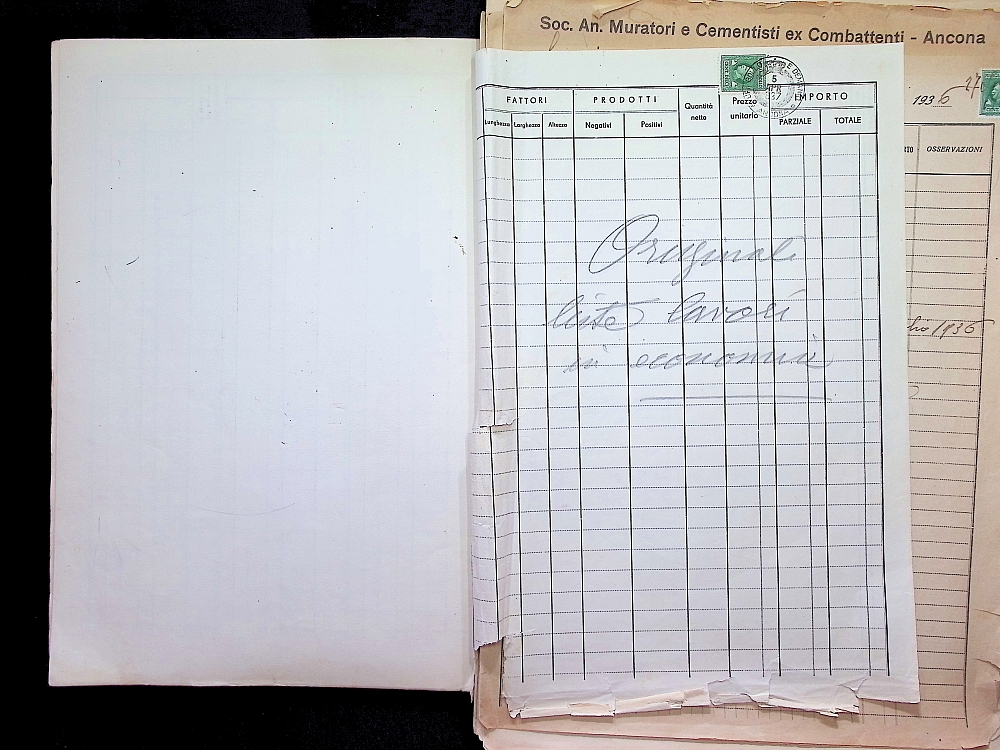 Soc. An. Muratori e Cementisti ex Combattenti - Ancona
1936
27
FATTORI PRODOTTI Quantità netto Prezzo unitario IMPORTO
Lunghezza Larghezza Altezza Negativi Positivi PARZIALE TOTALE
5
APR
937
ANCONA
OSSERVAZIONI
Originali
liste lavori
in economia
1936